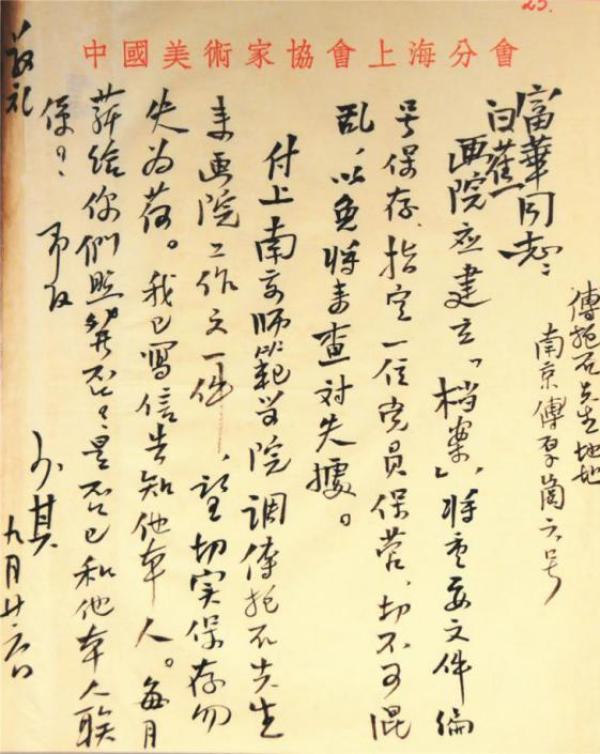 中國美術家協會上海分會
傅抱石先生地址
南京傅厚崗六号
富華
白蕉同志：
画院应建立「档案」，将重要文件编
号保存，指定一位党员保管，切不可混
乱，以免将来查对失據。
付上南京师範学院調傅抱石先生
来画院工作文一件，望切实保存勿
失为荷。我已寫信告知他本人。每月
薪给你們照發否？是否已和他本人联
係？ 即致
敬礼
少其
九月廿六日